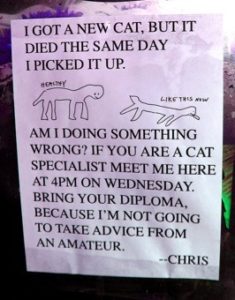 I GOT A NEW CAT, BUT IT
DIED THE SAME DAY
I PICKED IT UP.
HEALTHY
LIKE THIS NOW
AM I DOING SOMETHING
WRONG? IF YOU ARE A CAT
SPECIALIST MEET ME HERE
AT 4PM ON WEDNESDAY.
BRING YOUR DIPLOMA,
BECAUSE I'M NOT GOING
TO TAKE ADVICE FROM
AN AMATEUR.
--CHRIS